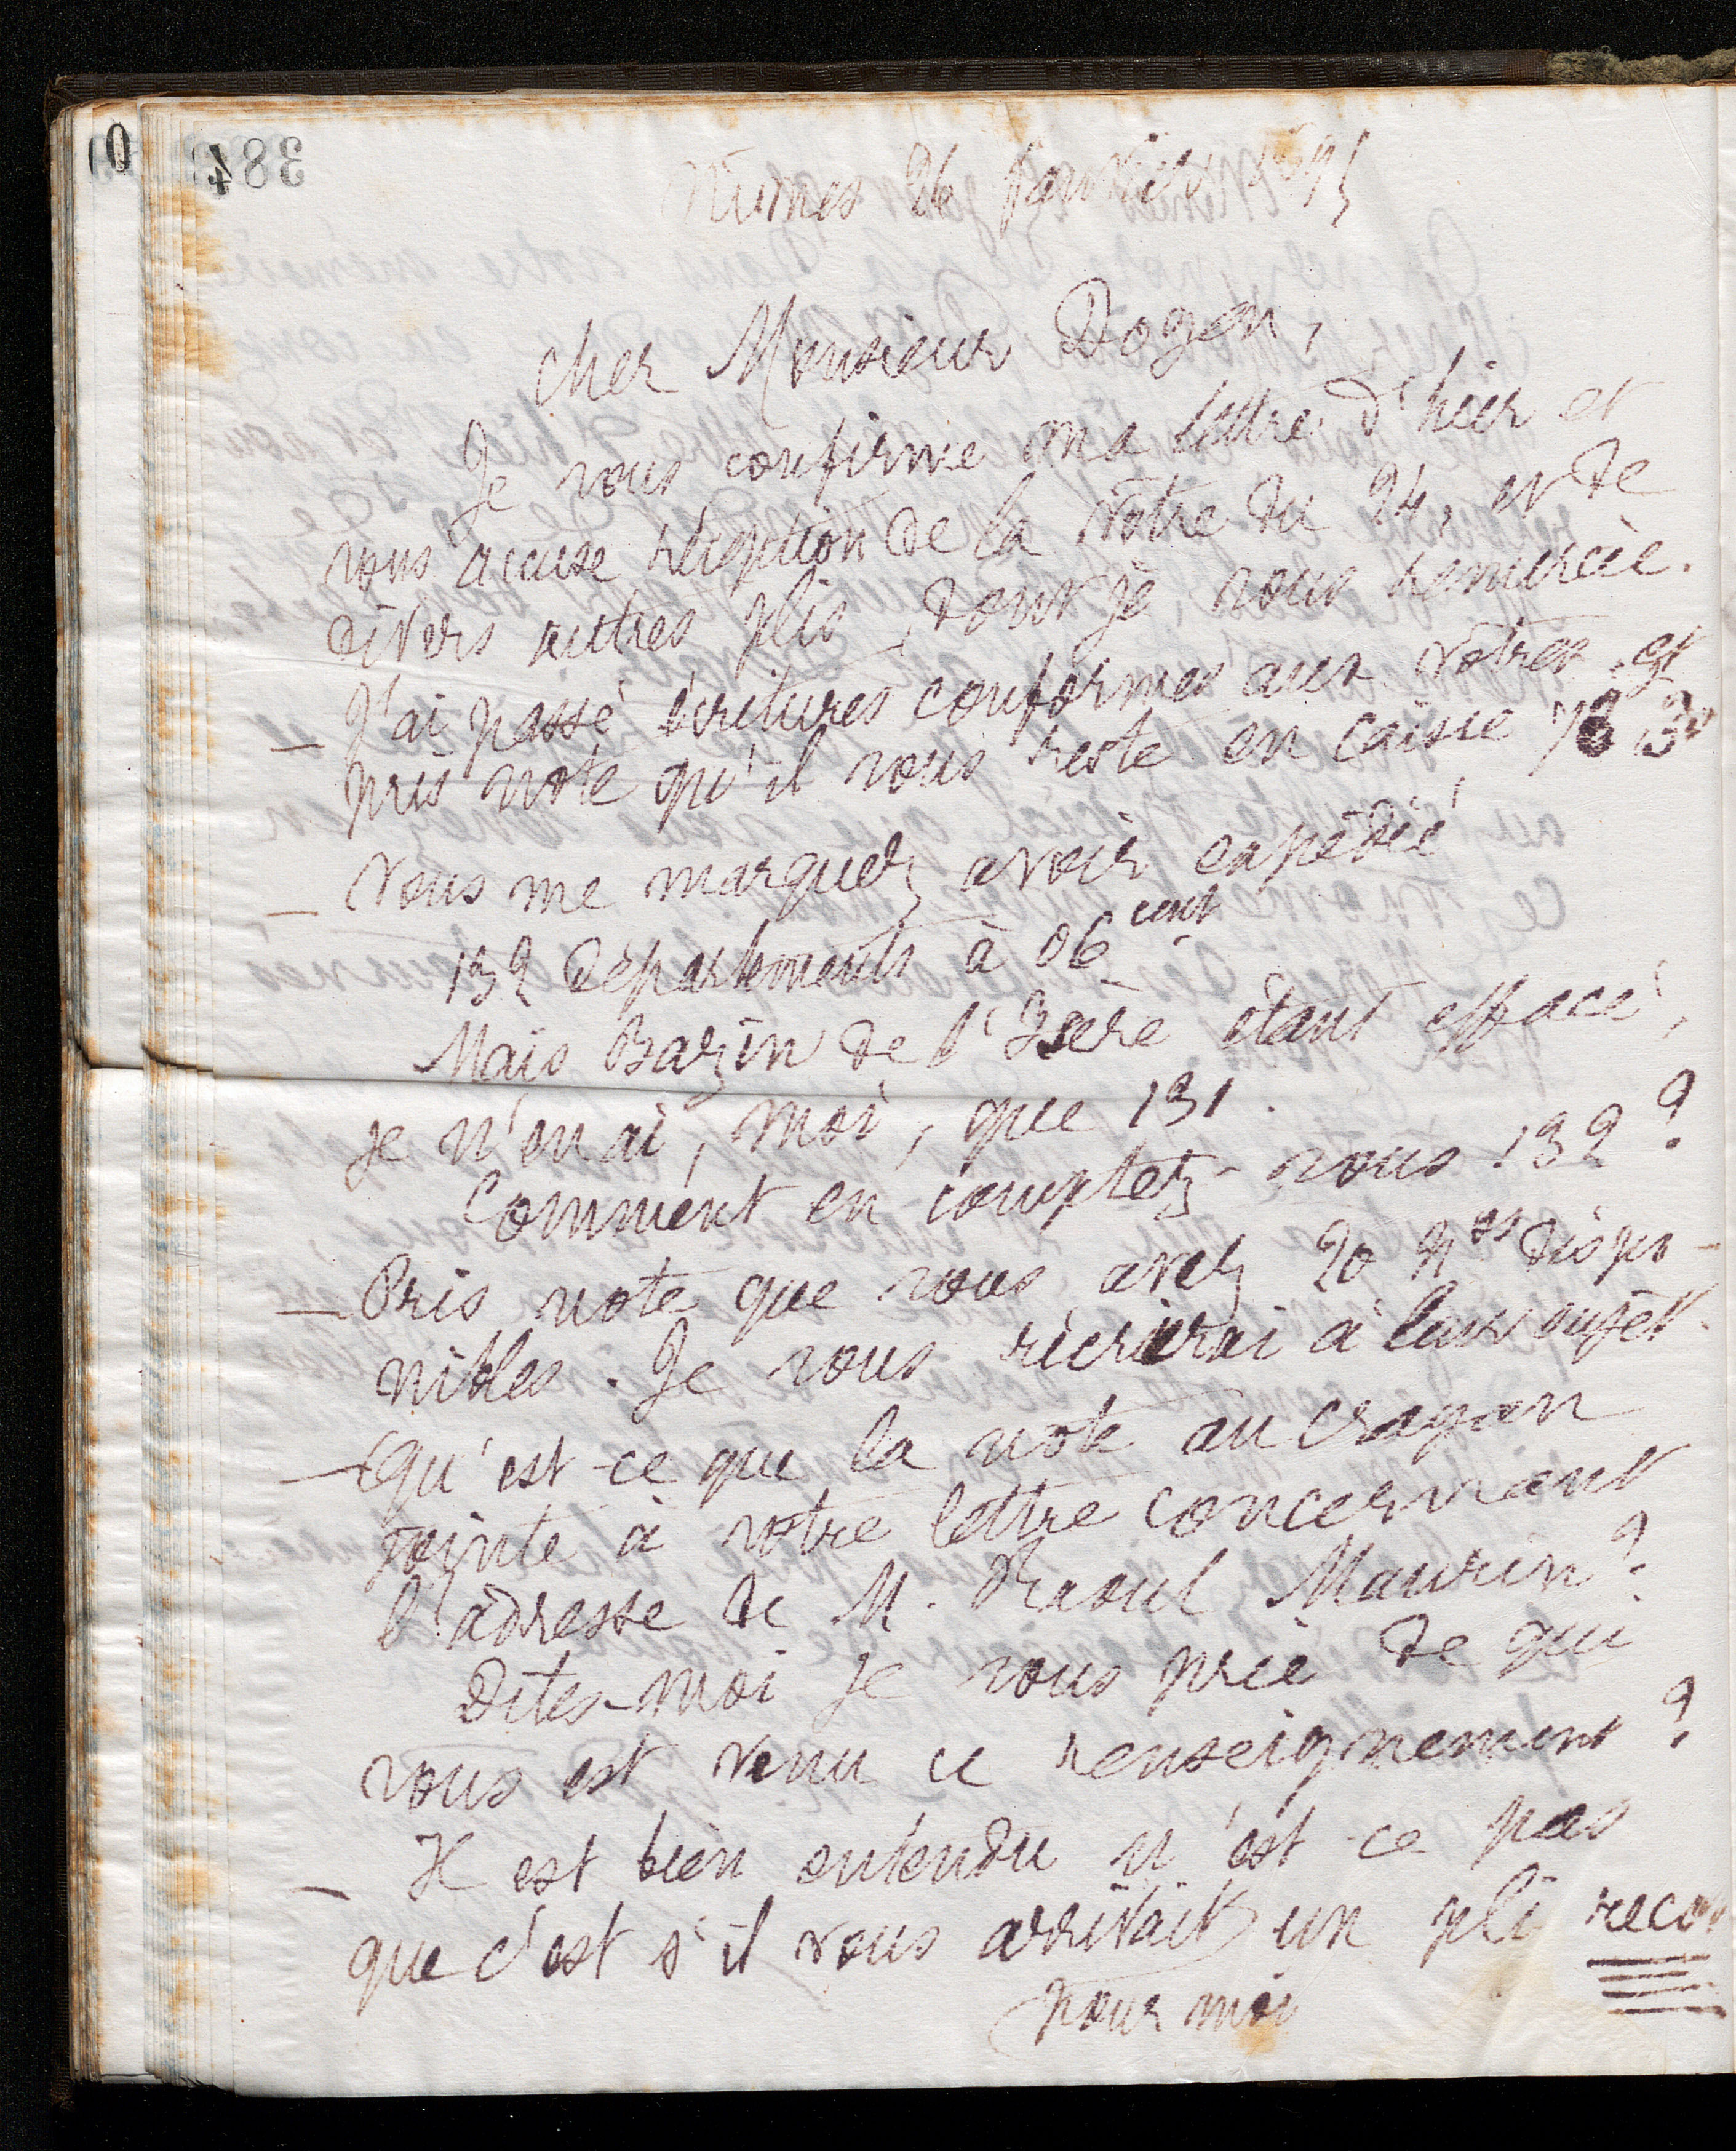 Nîmes 26 Janvier
Cher Monsieur Doyen,
Je vous confirme ma lettre d'hier et
vous accuse réception de la vôtre du 24, et de
divers autres plis, dont je vous remercie.
— J'ai passé écritures conformes aux vôtres et
pris note qu'il vous reste en caisse
— Vous me marquez avoir expédié
132 départements à 06 cent
Mais Bazin de l'Isère étant effacé,
je n'en ai, moi, que 131.
Comment en comptez-vous 132 ?
— Pris note que vous avez 20 Nos dispo-
nibles. Je vous récrirai à leur sujet.
— Qu'est-ce que la note au crayon
jointe à votre lettre concernant
l'adresse de M. Raoul Maurin ?
Dites-moi je vous prie de qui
vous est venu ce renseignement ?
— Il est bien entendu n'est-ce pas
que c'est s'il vous arrivait un pli reco
pour moi